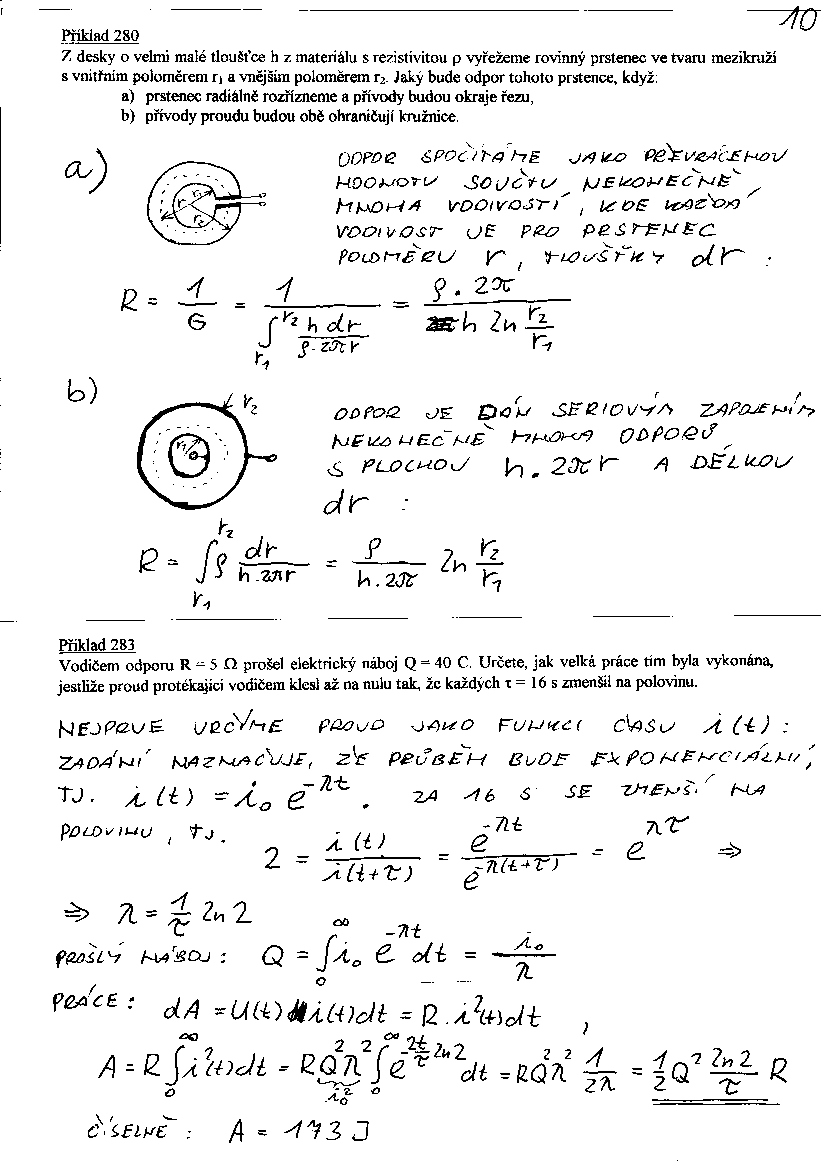 10
Příklad 280
Z desky o velmi malé tloušťce h z materiálu s rezistivitou ρ vyřežeme rovinný prstenec ve tvaru mezikruží
s vnitřním poloměrem r₁ a vnějším poloměrem r₂. Jaký bude odpor tohoto prstence, když:
a) prstenec radiálně rozřízneme a přívody budou okraje řezu,
b) přívody proudu budou obě ohraničují kružnice.
a)
r₁
r
r₂
ODPOR SPOČÍTÁME JAKO PŘEVRÁCENOU
HODNOTU SOUČTU NEKONEČNĚ
MNOHA VODIVOSTÍ, KDE KAŽDÁ
VODIVOST JE PRO PRSTENEC
POLOMĚRU r, TLOUŠŤKY dr :
R = 1/G = 1/(∫_{r₁}^{r₂} h dr/(ρ·2πr)) = ρ·2π/(h ln r₂/r₁)
b)
r₂
r₁
ODPOR JE DÁN SERIOVÝM ZAPOJENÍM
NEKONEČNĚ MNOHA ODPORŮ
S PLOCHOU h·2πr A DÉLKOU
dr :
R = ∫_{r₁}^{r₂} ρ dr/(h·2πr) = ρ/(h·2π) ln r₂/r₁
Příklad 283
Vodičem odporu R = 5 Ω prošel elektrický náboj Q = 40 C. Určete, jak velká práce tím byla vykonána,
jestliže proud protékající vodičem klesl až na nulu tak, že každých τ = 16 s zmenšil na polovinu.
NEJPRVE URČÍME PROUD JAKO FUNKCI ČASU i(t) :
ZADÁNÍ NAZNAČUJE, ŽE PRŮBĚH BUDE EXPONENCIÁLNÍ,
TJ. i(t) = i₀ e^{-λt}. ZA 16 S SE ZMENŠÍ NA
POLOVINU, TJ. 2 = i(t)/i(t+τ) = e^{-λt}/e^{-λ(t+τ)} = e^{λτ} ⇒
⇒ λ = 1/τ ln 2
PROŠLÝ NÁBOJ : Q = ∫_0^∞ i₀ e^{-λt} dt = i₀/λ
PRÁCE : dA = U(t) i(t)dt = R·i²(t)dt ,
A = R ∫_0^∞ i²(t)dt = RQ²λ² ∫_0^∞ e^{-2t/τ ln2} dt = RQ²λ² 1/2λ = 1/2 Q² ln2/τ R
i₀²
ČÍSELNĚ : A = 173 J